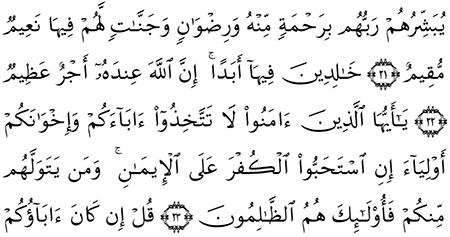 يُبَشِّرُهُمْ رَبُّهُم بِرَحْمَةٍ مِّنْهُ وَرِضْوَٰنٍ وَجَنَّٰتٍ لَّهُمْ فِيهَا نَعِيمٌ
مُّقِيمٌ ﴿٢١﴾ خَٰلِدِينَ فِيهَآ أَبَدًا ۚ إِنَّ ٱللَّهَ عِندَهُۥٓ أَجْرٌ عَظِيمٌ
﴿٢٢﴾ يَٰٓأَيُّهَا ٱلَّذِينَ ءَامَنُوا۟ لَا تَتَّخِذُوٓا۟ ءَابَآءَكُمْ وَإِخْوَٰنَكُمْ
أَوْلِيَآءَ إِنِ ٱسْتَحَبُّوا۟ ٱلْكُفْرَ عَلَى ٱلْإِيمَٰنِ ۚ وَمَن يَتَوَلَّهُم
مِّنكُمْ فَأُو۟لَٰٓئِكَ هُمُ ٱلظَّٰلِمُونَ ﴿٢٣﴾ قُلْ إِن كَانَ ءَابَآؤُكُمْ